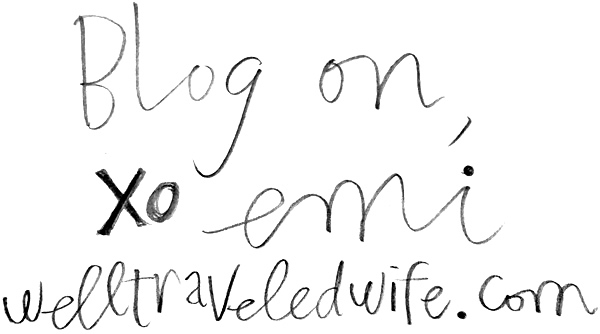 Blog on,
xo emi
welltraveledwife.com